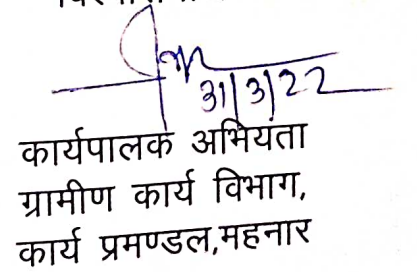 31/3/22
कार्यपालक अभियंता
ग्रामीण कार्य विभाग,
कार्य प्रमण्डल,महनार